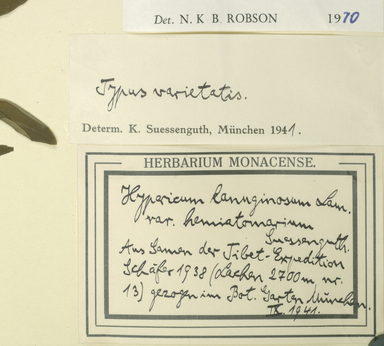 Det. N. K B. ROBSON 1970
Typus varietatis.
Determ. K. Suessenguth, München 1941.
HERBARIUM MONACENSE.
Hypericum lanuginosum Lam.
var. hemiatomarium
Suessenguth.
Aus Samen der Tibet-Expedition
Schäfer 1938 (Lachen 2700m, nr.
13) gezogen im Bot. Garten München.
IX. 1941.